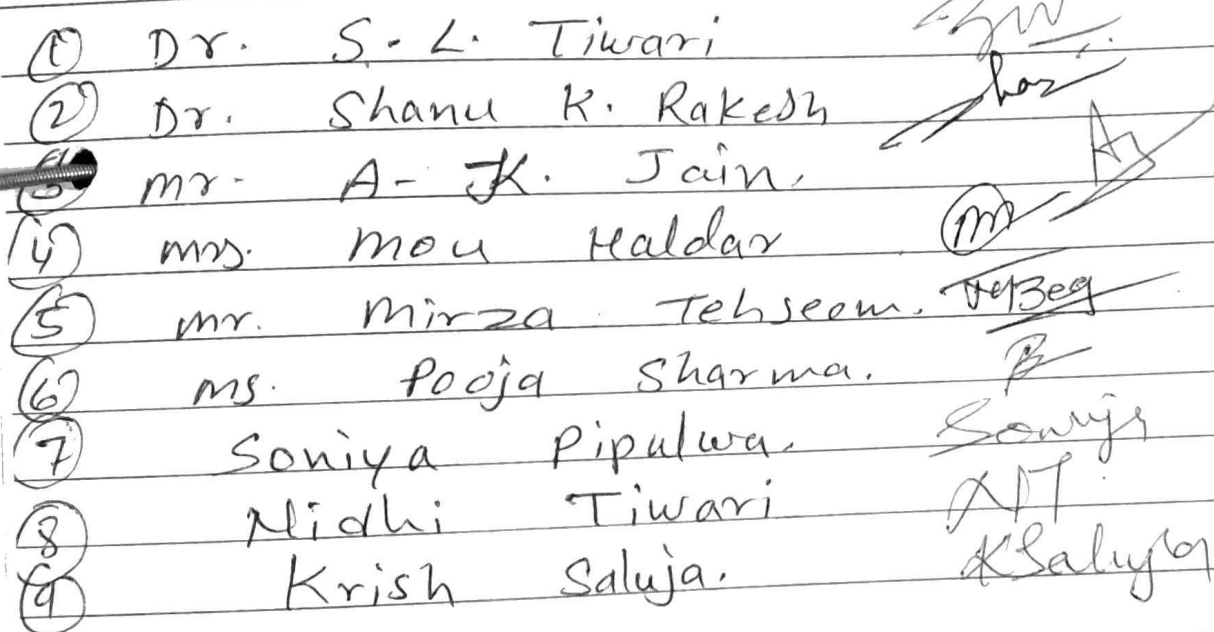 ① Dr. S. L. Tiwari
② Dr. Shanu K. Rakesh
mr. A. K. Jain.
④ mrs. Mou Haldar
⑤ mr. Mirza Tehseem. Beg
⑥ ms. Pooja Sharma.
⑦ Soniya Pipalwa.
⑧ Nidhi Tiwari NT
⑨ Krish Saluja. KSaluja